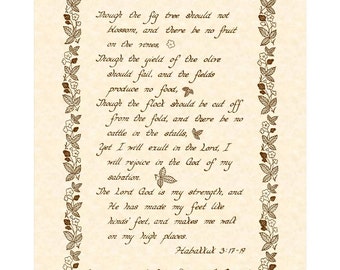 Though the fig tree should not
blossom, and there be no fruit
on the vines,
Though the yield of the olive
should fail, and the fields
produce no food,
Though the flock should be cut off
from the fold, and there be no
cattle in the stalls,
Yet I will exult in the Lord, I
will rejoice in the God of my
salvation.
The Lord God is my strength, and
He has made my feet like
hinds' feet, and makes me walk
on my high places.
Habakkuk 3:17-19